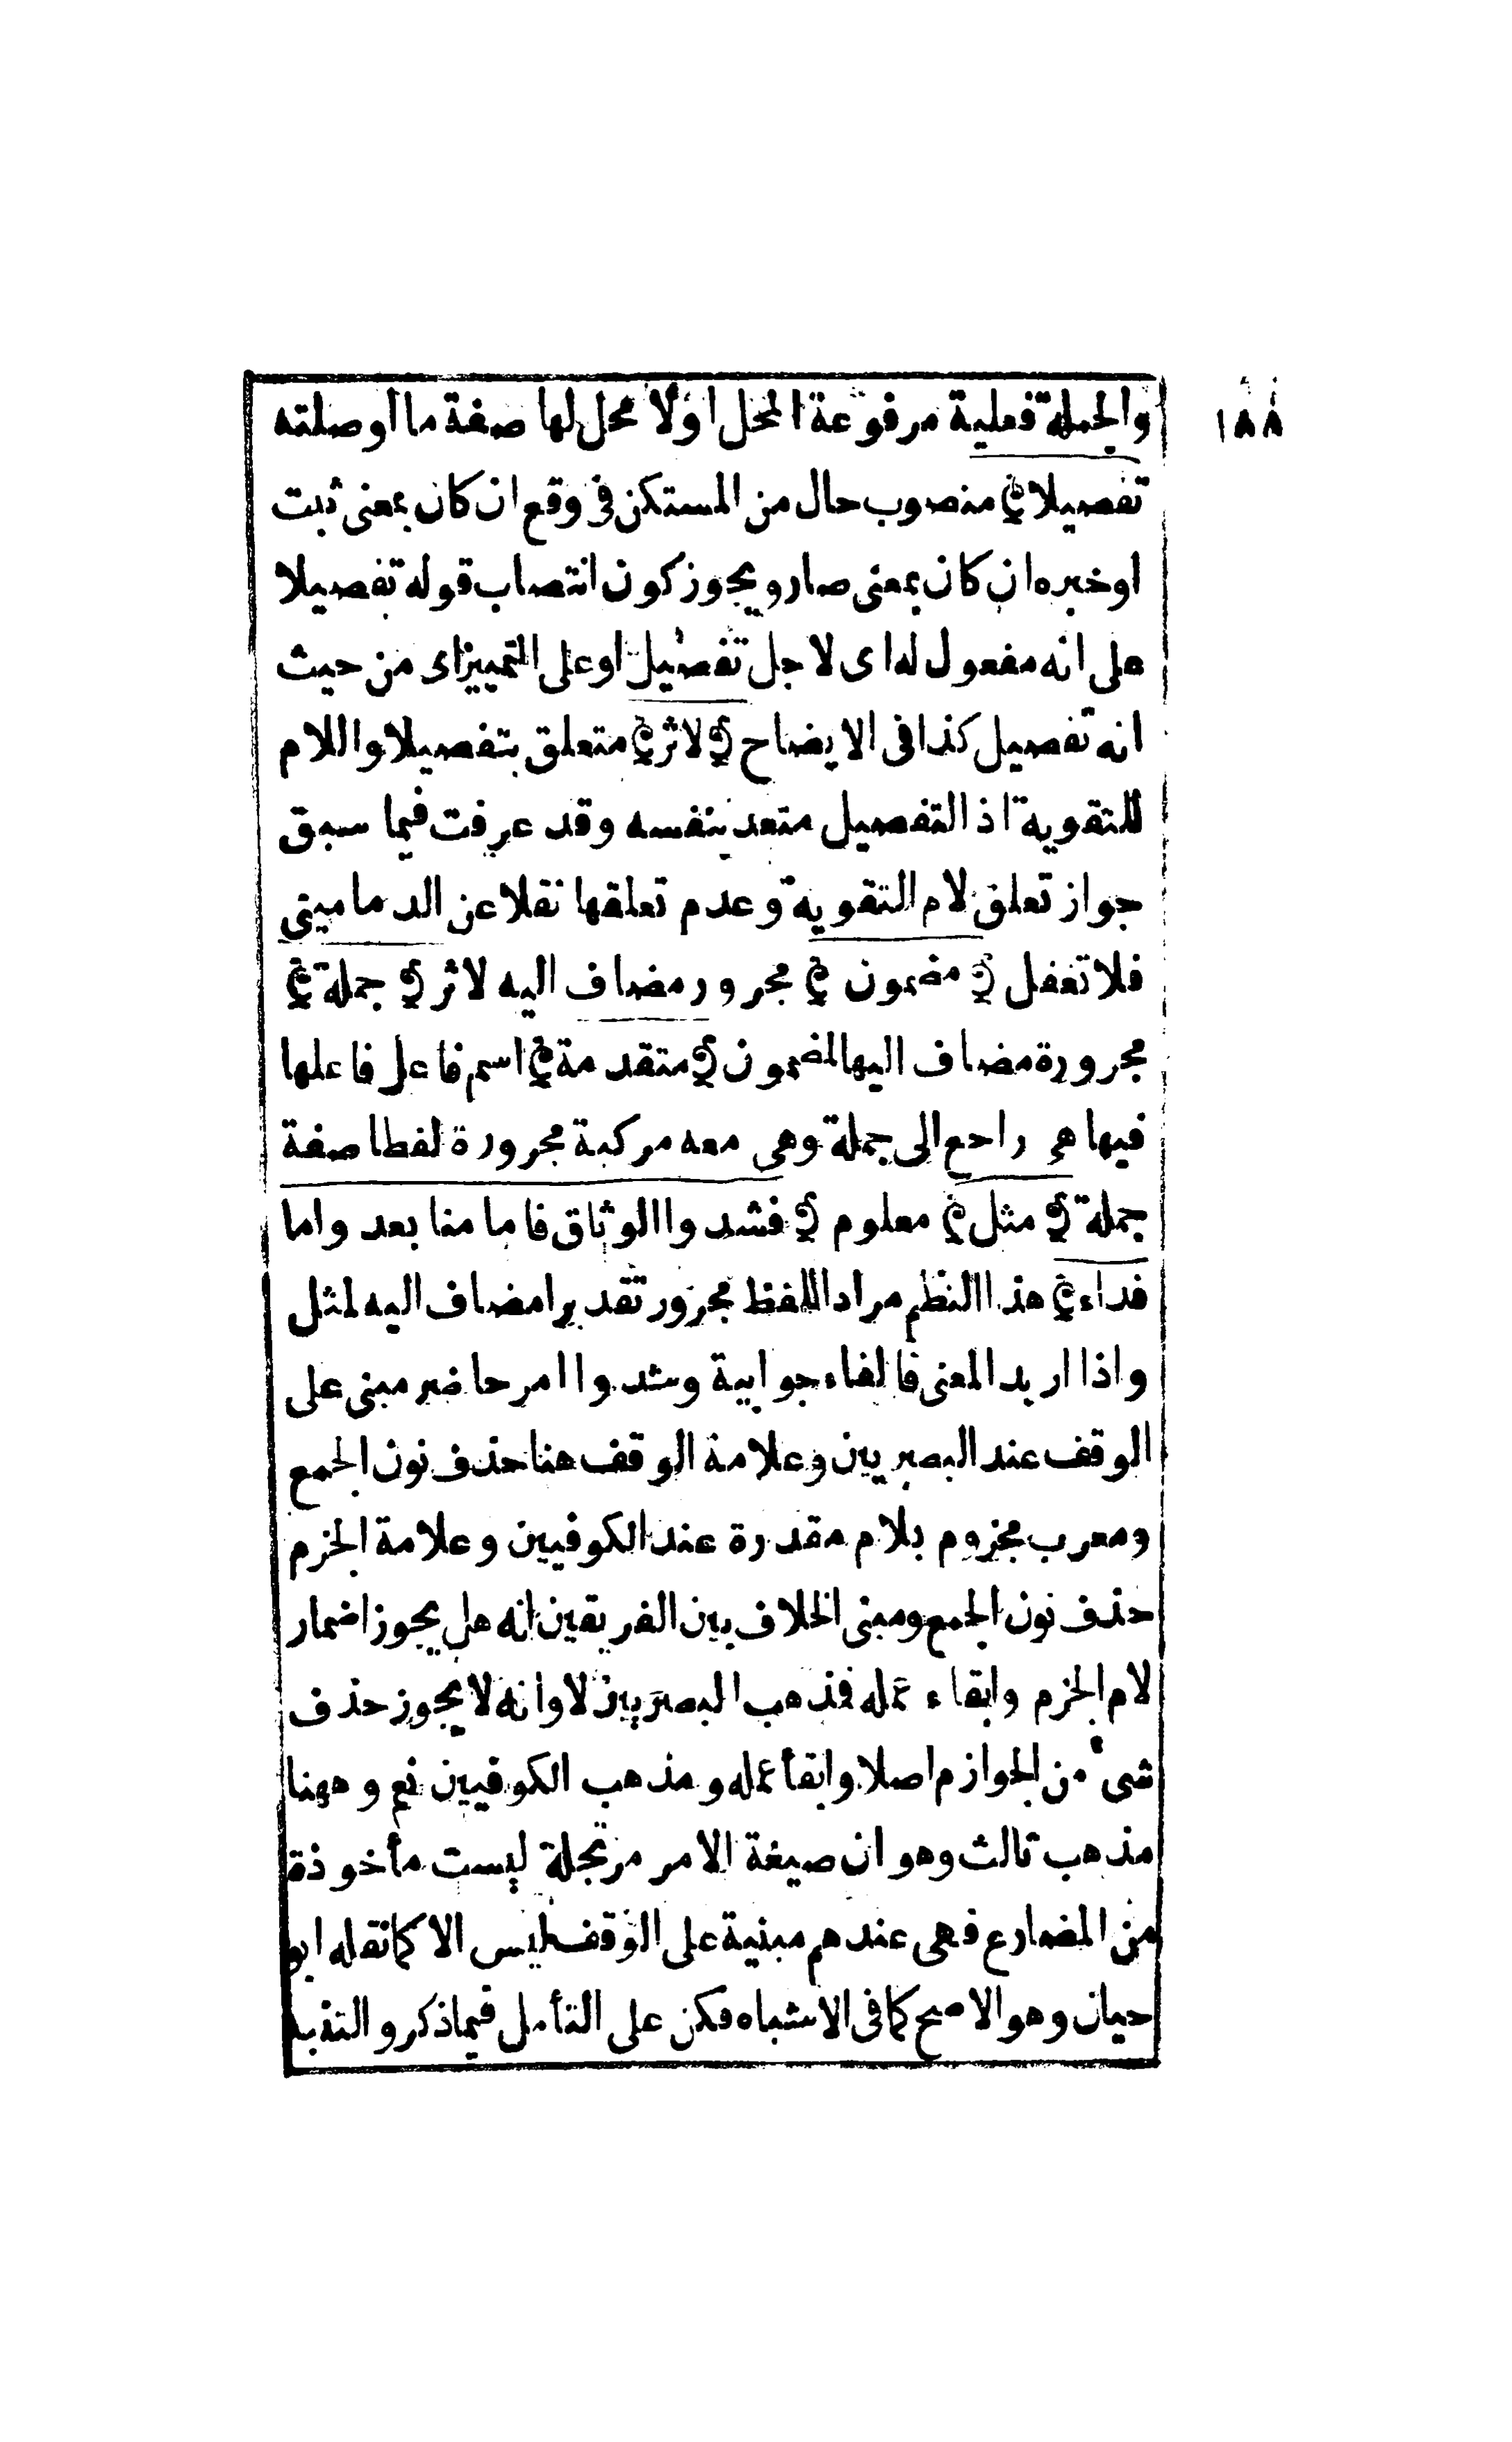 ١٨٨
والجملة فعلية مرفوعة المحل اولا محل لها صفة ما اوصلته
تفصيلا ﴾ منصوب حال من المستكن فى وقع ان كان بمعنى ثبت
اوخبره ان كان بمعنى صار ويجوز كون انتصاب قوله تفصيلا
على انه مفعول له اى لاجل تفصيل اوعلى التمييز اى من حيث
انه تفصيل كذا فى الايضاح ﴿ لاثر ﴾ متعلق بتفصيلا واللام
للتقوية اذ التفصيل متعد بنفسه وقد عرفت فيما سبق
جواز تعلق لام التقوية وعدم تعلقها نقلا عن الدمامينى
فلا تغفل ﴿ مضمون ﴾ مجرور مضاف اليه لاثر ﴿ جملة ﴾
مجرورة مضاف اليها لمضمون ﴿ متقدمة ﴾ اسم فاعل فاعلها
فيها هى راجع الى جملة وهى معه مركبة مجرورة لفظا صفة
جملة ﴿ مثل ﴾ معلوم ﴿ فشدوا الوثاق فاما منا بعد واما
فداء ﴾ هذا النظم مراد اللفظ مجرور تقديرا مضاف اليه لمثل
واذا اريد المعنى فالفاء جوابية وشدوا امر حاضر مبنى على
الوقف عند البصريين وعلامة الوقف هنا حذف نون الجمع
ومعرب مجزوم بلام مقدرة عند الكوفيين وعلامة الجزم
حذف نون الجمع ومبنى الخلاف بين الفريقين انه هل يجوز اضمار
لام الجزم وابقاء عمله فذهب البصريين لا وانه لا يجوز حذف
شئ من الجوازم اصلا وابقأ عمله ومذهب الكوفيين نعم وههنا
مذهب ثالث وهو ان صيغة الامر مرتجلة ليست مأخوذة
من المضارع فهى عندهم مبنية على الوقف ليس الا كما نقله ابو
حيان وهو الاصح كما فى الاشباه فكن على التأمل فيما ذكر و